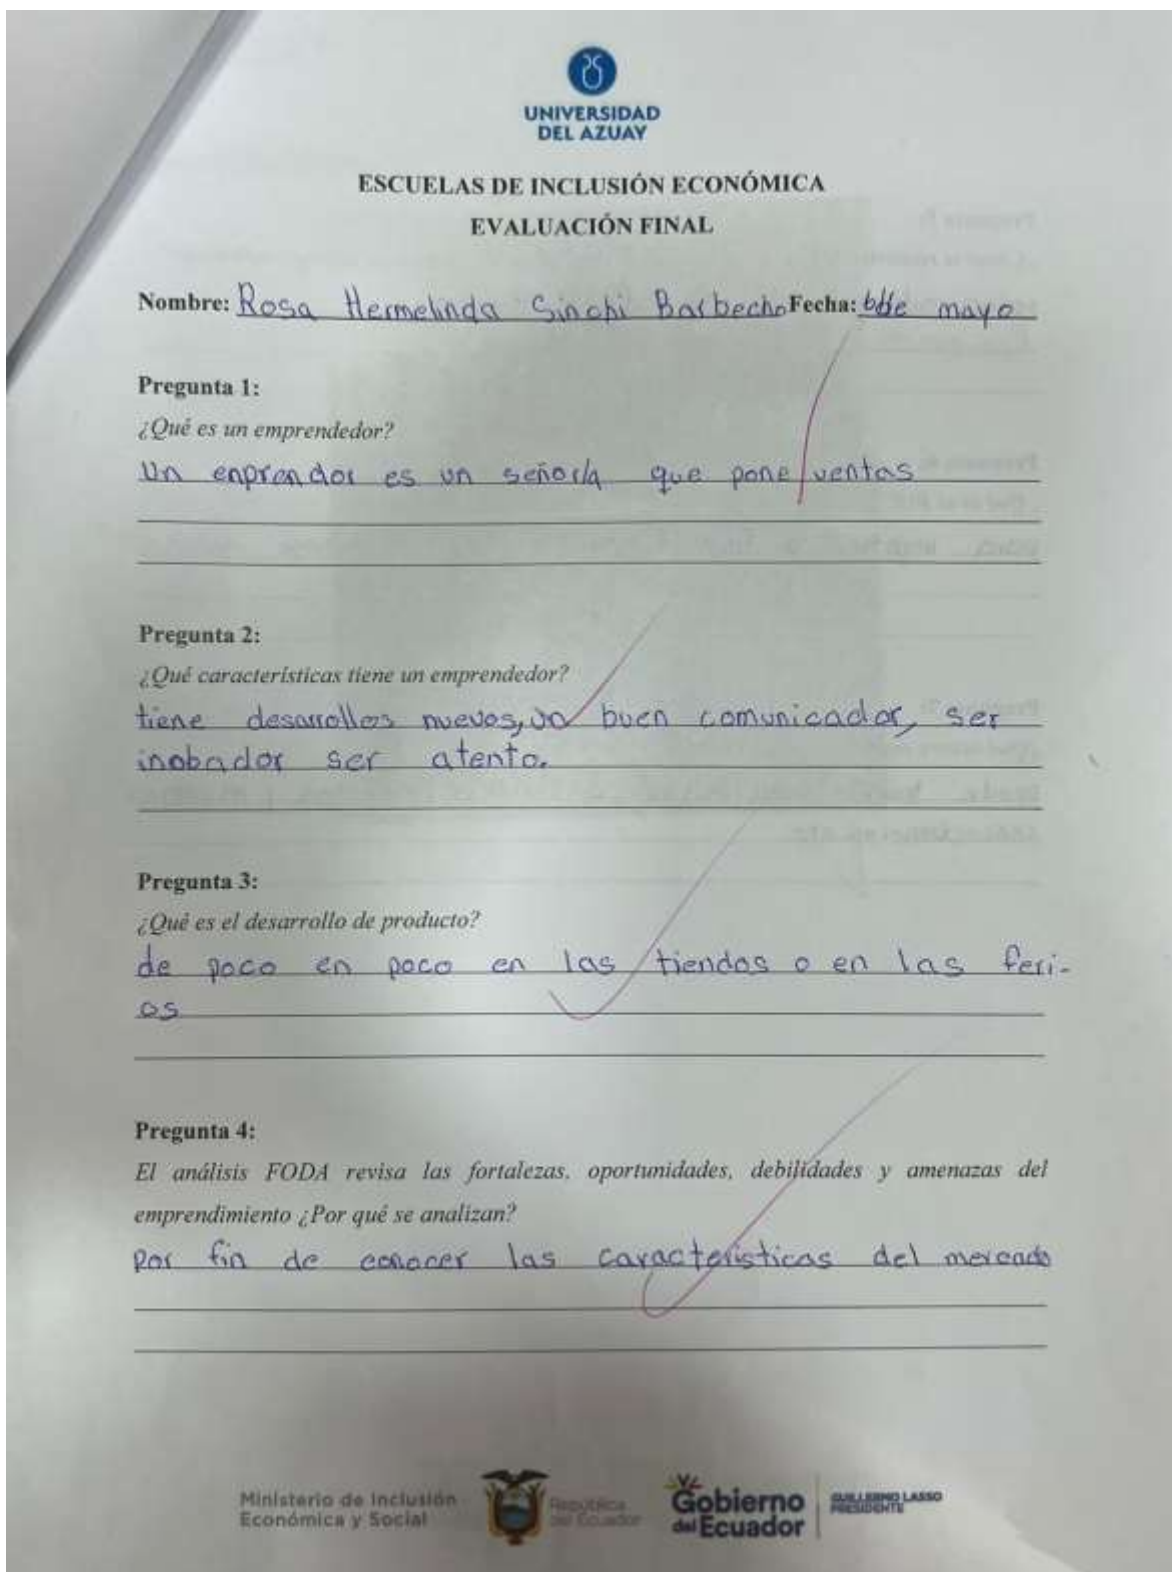 UNIVERSIDAD
DEL AZUAY
ESCUELAS DE INCLUSIÓN ECONÓMICA
EVALUACIÓN FINAL
Nombre: Rosa Hermelinda Sinchi Barbecho Fecha: de mayo
Pregunta 1:
¿Qué es un emprendedor?
Un enprendor es un señor/a que pone ventas
Pregunta 2:
¿Qué características tiene un emprendedor?
tiene desarrollos nuevos, un buen comunicador, ser
inobador ser atento.
Pregunta 3:
¿Qué es el desarrollo de producto?
de poco en poco en las tiendas o en las feri-
as
Pregunta 4:
El análisis FODA revisa las fortalezas, oportunidades, debilidades y amenazas del
emprendimiento ¿Por qué se analizan?
por fin de conocer las características del mercado
Ministerio de Inclusión
Económica y Social
República
del Ecuador
Gobierno
del Ecuador
GUILLERMO LASSO
PRESIDENTE